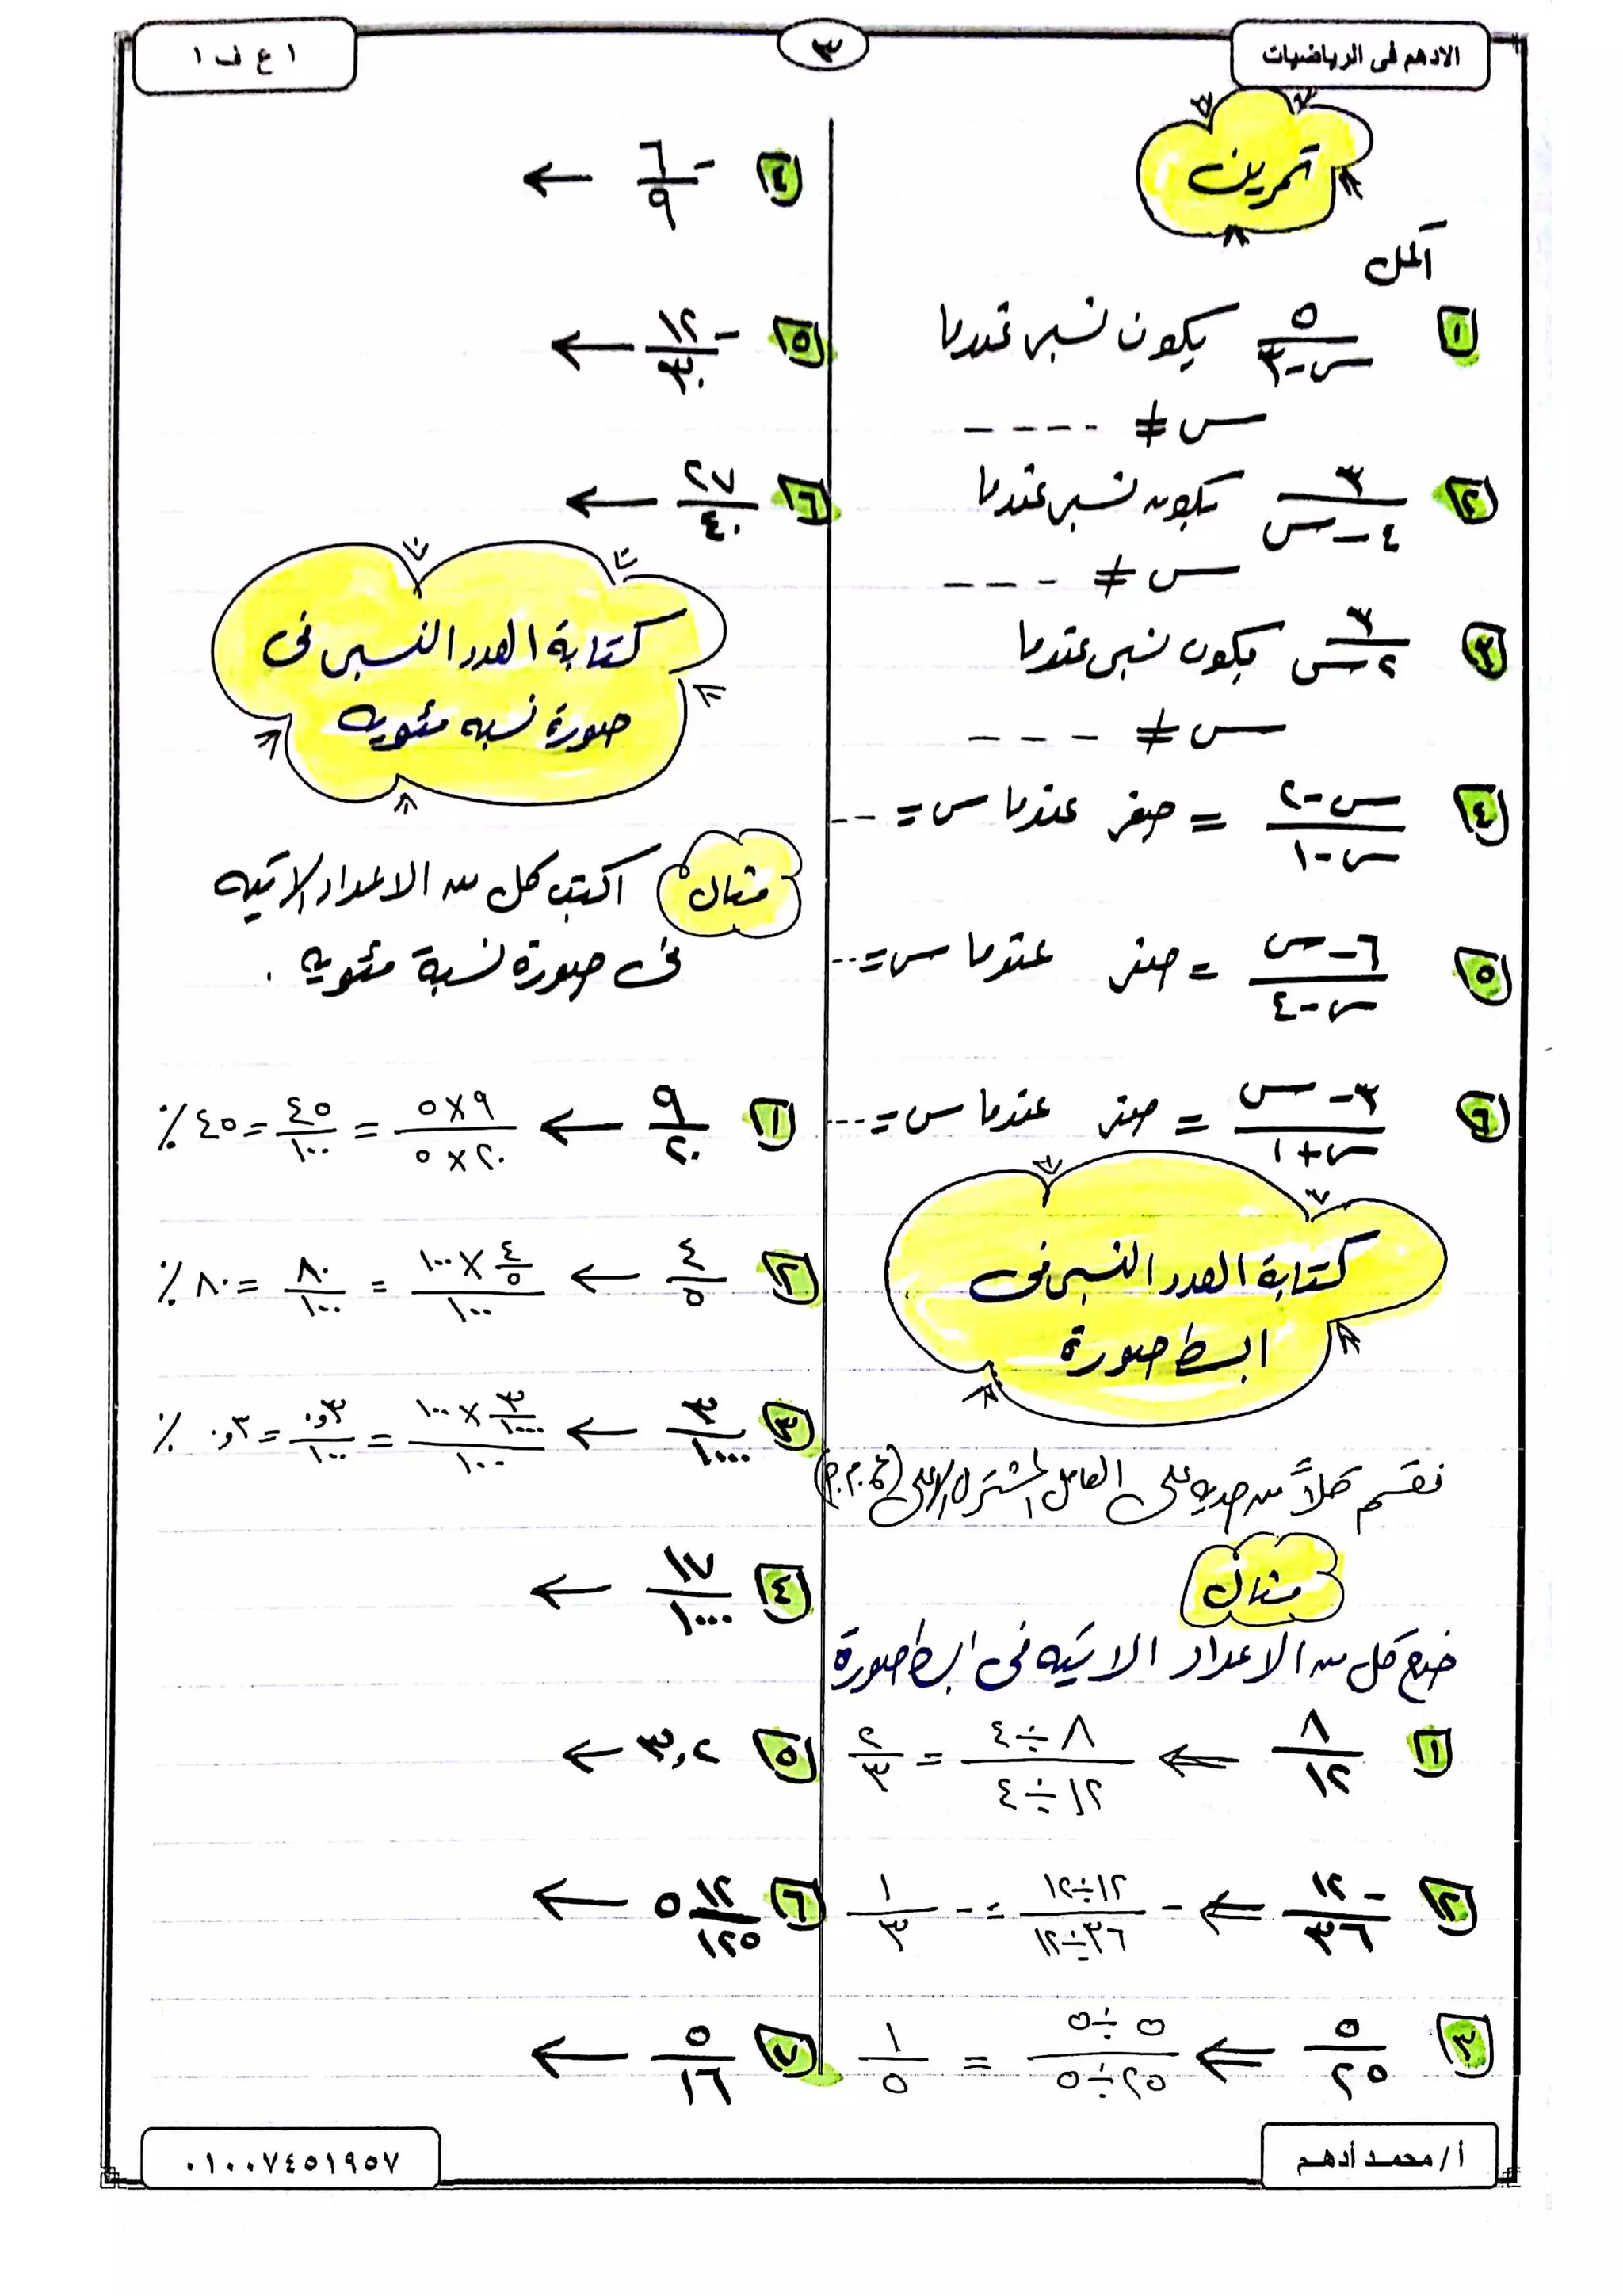 الادهم فى الرياضيات
٣
١ ع ف ١
تمرين
أكمل
١ ٥/(س-٣) يكون نسبى عندما
س ≠ ----
٢ ٣/(٤-س) يكون نسبى عندما
س ≠ ---
٣ ٣/(٢س) يكون نسبى عندما
س ≠ ---
٤ (س-٢)/(س-١) = صفر عندما س = --
٥ (٦-س)/(س-٤) = صفر عندما س = --
٦ (٣-س)/(س+١) = صفر عندما س = ---
كتابة العدد النسبى فى
ابسط صورة
نقسم كلاً من حديه على العامل المشترك الاعلى (ع.م.م)
مثال
ضع كل من الاعداد الاتيه فى ابسط صورة
١ ٨/١٢ ⇐ (٨÷٤)/(١٢÷٤) = ٢/٣
٢ -١٢/٣٦ ⇐ -(١٢÷١٢)/(٣٦÷١٢) = -١/٣
٣ ٥/٢٥ ⇐ (٥÷٥)/(٢٥÷٥) = ١/٥
٤ -٦/٩ ←
٥ -١٢/٣٠ ←
٦ ٢٧/٤٠ ←
كتابة العدد النسبى فى
صورة نسبه مئويه
مثال اكتب كل من الاعداد الاتيه
فى صورة نسبة مئويه .
١ ٩/٢٠ ← (٩×٥)/(٢٠×٥) = ٤٥/١٠٠ = ٤٥٪
٢ ٤/٥ ← (٤/٥ ×١٠٠)/١٠٠ = ٨٠/١٠٠ = ٨٠٪
٣ ٣/١٠٠٠ ← (٣/١٠٠٠ ×١٠٠)/١٠٠ = ٠,٣/١٠٠ = ٠,٣٪
٤ ١٧/١٠٠٠ ←
٥ ٣,٢ ←
٦ ٥ ١٢/١٢٥ ←
٧ ٥/١٦ ←
أ/ محمد أدهم
٠١٠٠٧٤٥١٩٥٧